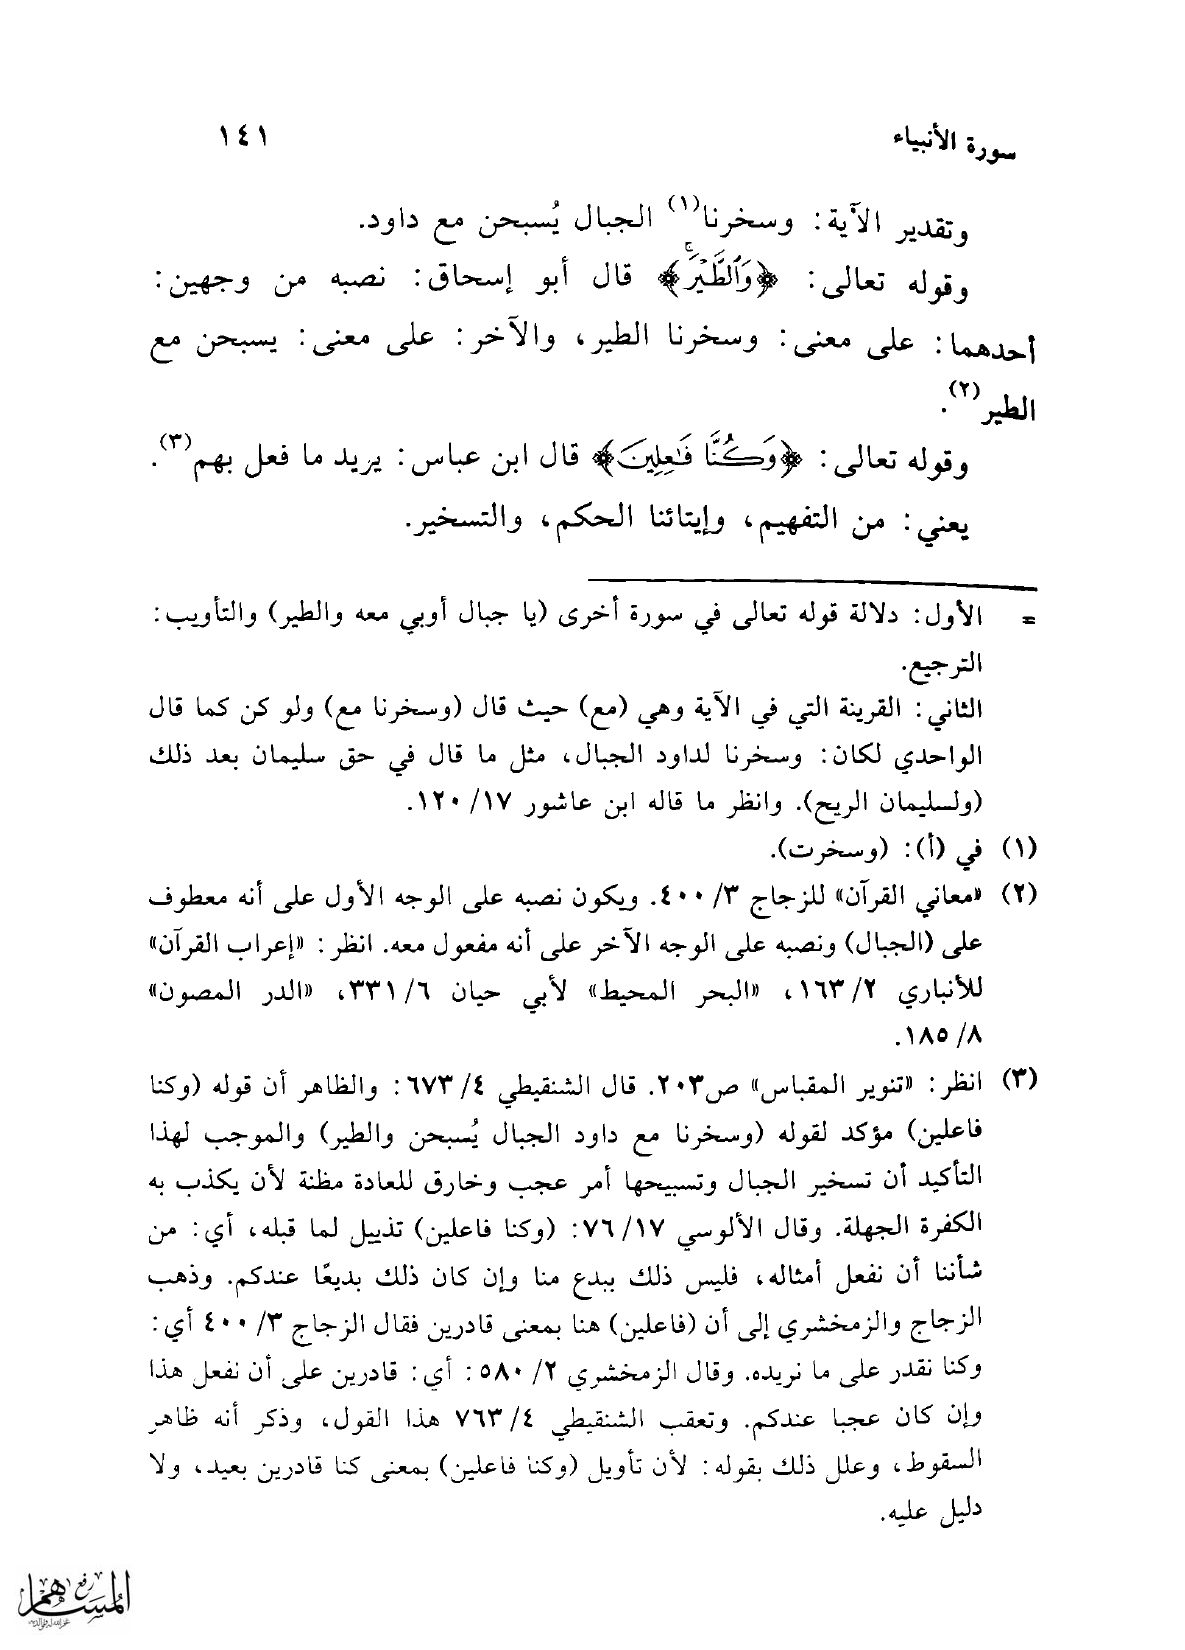 سورة الأنبياء ١٤١
وتقدير الآية: وسخرنا(١) الجبال يُسبحن مع داود.
وقوله تعالى: ﴿وَٱلطَّيْرَۚ﴾ قال أبو إسحاق: نصبه من وجهين:
أحدهما: على معنى: وسخرنا الطير، والآخر: على معنى: يسبحن مع
الطير(٢).
وقوله تعالى: ﴿وَكُنَّا فَٰعِلِينَ﴾ قال ابن عباس: يريد ما فعل بهم(٣).
يعني: من التفهيم، وإيتائنا الحكم، والتسخير.
= الأول: دلالة قوله تعالى في سورة أخرى (يا جبال أوبي معه والطير) والتأويب:
الترجيع.
الثاني: القرينة التي في الآية وهي (مع) حيث قال (وسخرنا مع) ولو كن كما قال
الواحدي لكان: وسخرنا لداود الجبال، مثل ما قال في حق سليمان بعد ذلك
(ولسليمان الريح). وانظر ما قاله ابن عاشور ١٧/ ١٢٠.
(١) في (أ): (وسخرت).
(٢) «معاني القرآن» للزجاج ٣/ ٤٠٠. ويكون نصبه على الوجه الأول على أنه معطوف
على (الجبال) ونصبه على الوجه الآخر على أنه مفعول معه. انظر: «إعراب القرآن»
للأنباري ٢/ ١٦٣، «البحر المحيط» لأبي حيان ٦/ ٣٣١، «الدر المصون»
٨/ ١٨٥.
(٣) انظر: «تنوير المقباس» ص٢٠٣. قال الشنقيطي ٤/ ٦٧٣: والظاهر أن قوله (وكنا
فاعلين) مؤكد لقوله (وسخرنا مع داود الجبال يُسبحن والطير) والموجب لهذا
التأكيد أن تسخير الجبال وتسبيحها أمر عجب وخارق للعادة مظنة لأن يكذب به
الكفرة الجهلة. وقال الألوسي ١٧/ ٧٦: (وكنا فاعلين) تذييل لما قبله، أي: من
شأننا أن نفعل أمثاله، فليس ذلك ببدع منا وإن كان ذلك بديعًا عندكم. وذهب
الزجاج والزمخشري إلى أن (فاعلين) هنا بمعنى قادرين فقال الزجاج ٣/ ٤٠٠ أي:
وكنا نقدر على ما نريده. وقال الزمخشري ٢/ ٥٨٠: أي: قادرين على أن نفعل هذا
وإن كان عجبا عندكم. وتعقب الشنقيطي ٤/ ٧٦٣ هذا القول، وذكر أنه ظاهر
السقوط، وعلل ذلك بقوله: لأن تأويل (وكنا فاعلين) بمعنى كنا قادرين بعيد، ولا
دليل عليه.